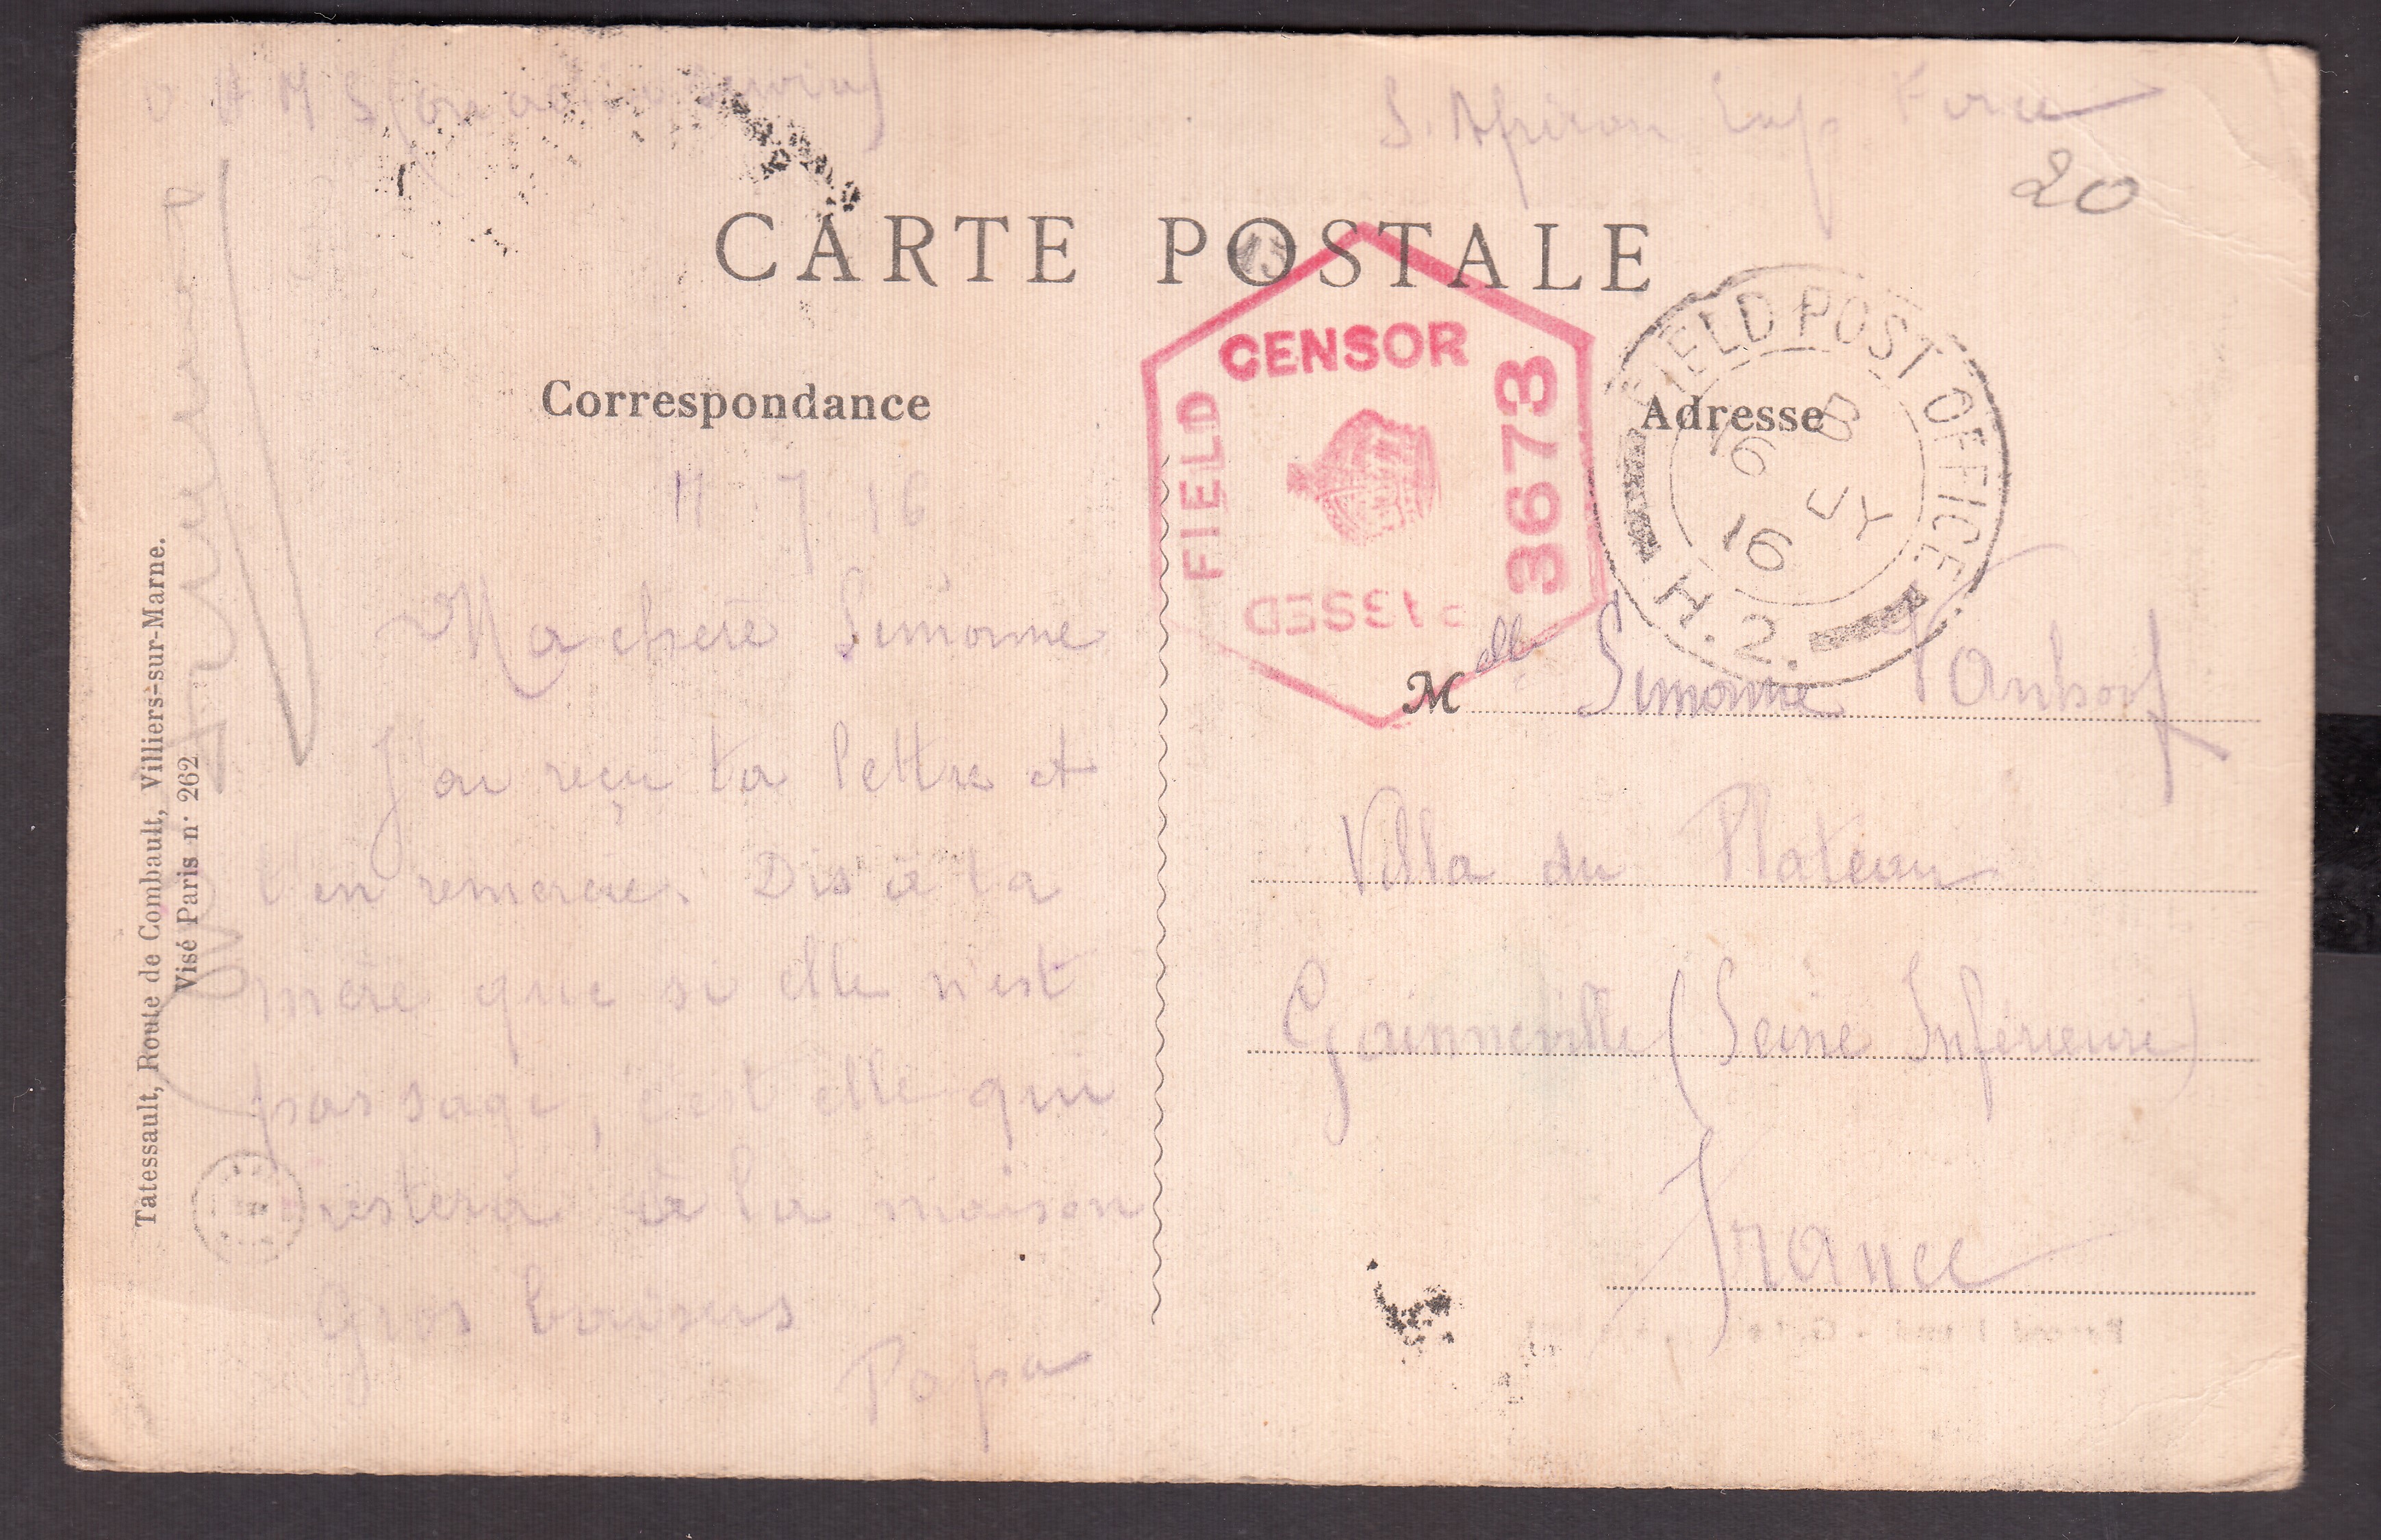 O H M S (on active service)
S. African Exp. Force
20
CARTE POSTALE
Correspondance
Adresse
CENSOR
FIELD
3673
PASSED
FIELD POST OFFICE
B
16 JY
16
H.2.
11 7 16
Ma chère Simonne
J'ai reçu ta lettre et
t'en remercie. Dis à ta
mère que si elle n'est
pas sage, c'est elle qui
restera à la maison
Gros baisers
Papa
Melle Simonne Vanhoof
Villa du Plateau
Gainneville (Seine Inférieure)
France
Tatessault, Route de Combault, Villiers-sur-Marne.
Visé Paris n· 262